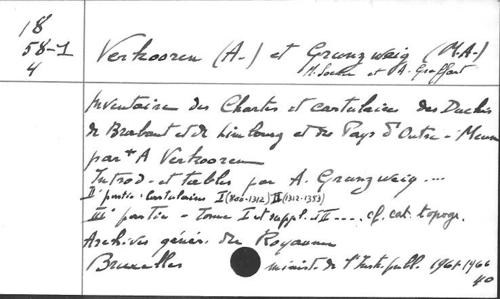 18
58-1
4
Verkooren (A-) et Grunzweig (M.A-)
M. Soenen et A. Graffart
Inventaire des Chartes et cartulaire des Duchés
de Brabant et de Limbourg et des Pays d'Outre-Meuse
par A Verkooren
Introd- et tables par A. Grunzweig ...
IIe partie: Cartulaires I (800-1312) II (1312-1353)
IIIe partie - Tome I et suppl. et II .... cf. cat. topogr.
Archives génér. du Royaume
Bruxelles minist. de l'Instr. publ. 1961-1966
40